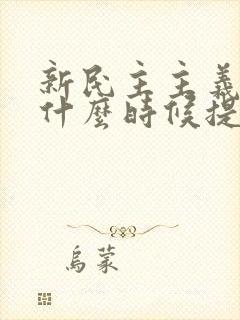 新民主主義
什麼時候提
烏蒙